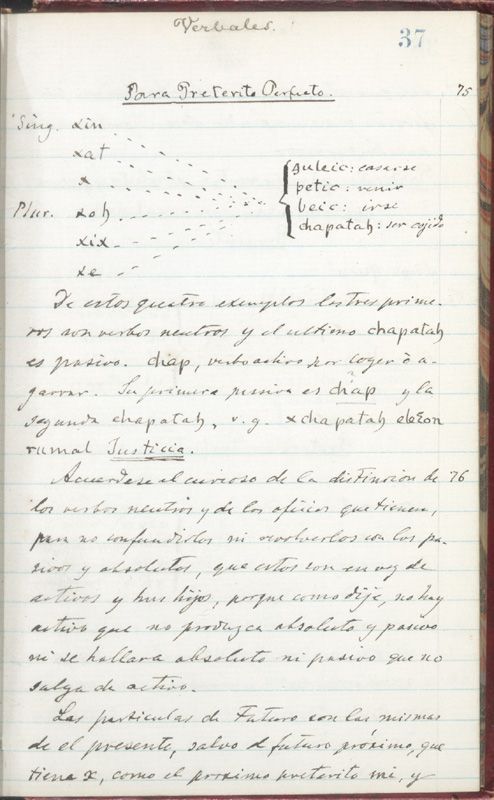 Verbales.
37
Para Preterito Perfecto.
75
Sing. xin
xat
x
Plur. xoh
xix
xe
guleic: casarse
petic: venir
beic: irse
chapatah: ser cojido
De estos quatro exemplos los tres prime-
ros son verbos neutros y el ultimo chapatah
es pasivo. chap, verbo activo por coger ò a-
garrar. Su primera passiva es chap y la
segunda chapatah, v.g. xchapatah elezon
rumal Justicia.
Acuerdese el curioso de la distincion de
76
los verbos neutros y de los afixos que tienen,
para no confundirlos ni revolverlos con los pa-
sivos y absolutos, que estos son en voz de
activos y sus hijos, porque como dije, no hay
activo que no produzca absoluto y pasivo
ni se hallara absoluto ni pasivo que no
salga de activo.
Las particulas de Futuro son las mismas
de el presente, salvo el futuro próximo, que
tiene x, como el proximo preterito mi, y